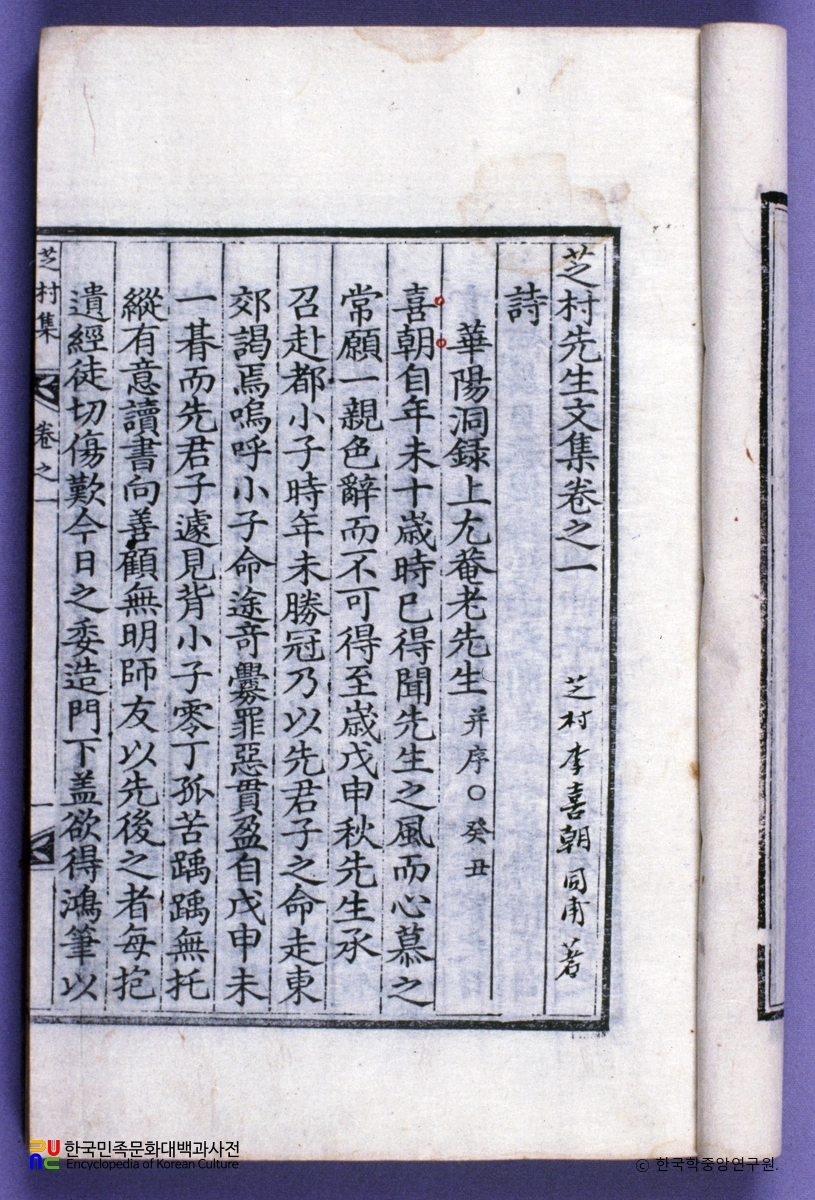 芝村先生文集卷之一
芝村 李喜朝 同甫 著
詩
華陽洞録上尤菴老先生 并序○癸丑
喜朝自年未十歲時已得聞先生之風而心慕之
常願一親色辭而不可得至歲戊申秋先生承
召赴都小子時年未勝冠乃以先君子之命走東
郊謁焉嗚呼小子命途奇釁罪惡貫盈自戊申未
一朞而先君子遽見背小子零丁孤苦踽踽無托
縱有意讀書向善顧無明師友以先後之者每抱
遺經徒切傷歎今日之委造門下盖欲得鴻筆以
芝村集
卷之一
一
한국민족문화대백과사전
Encyclopedia of Korean Culture
© 한국학중앙연구원.